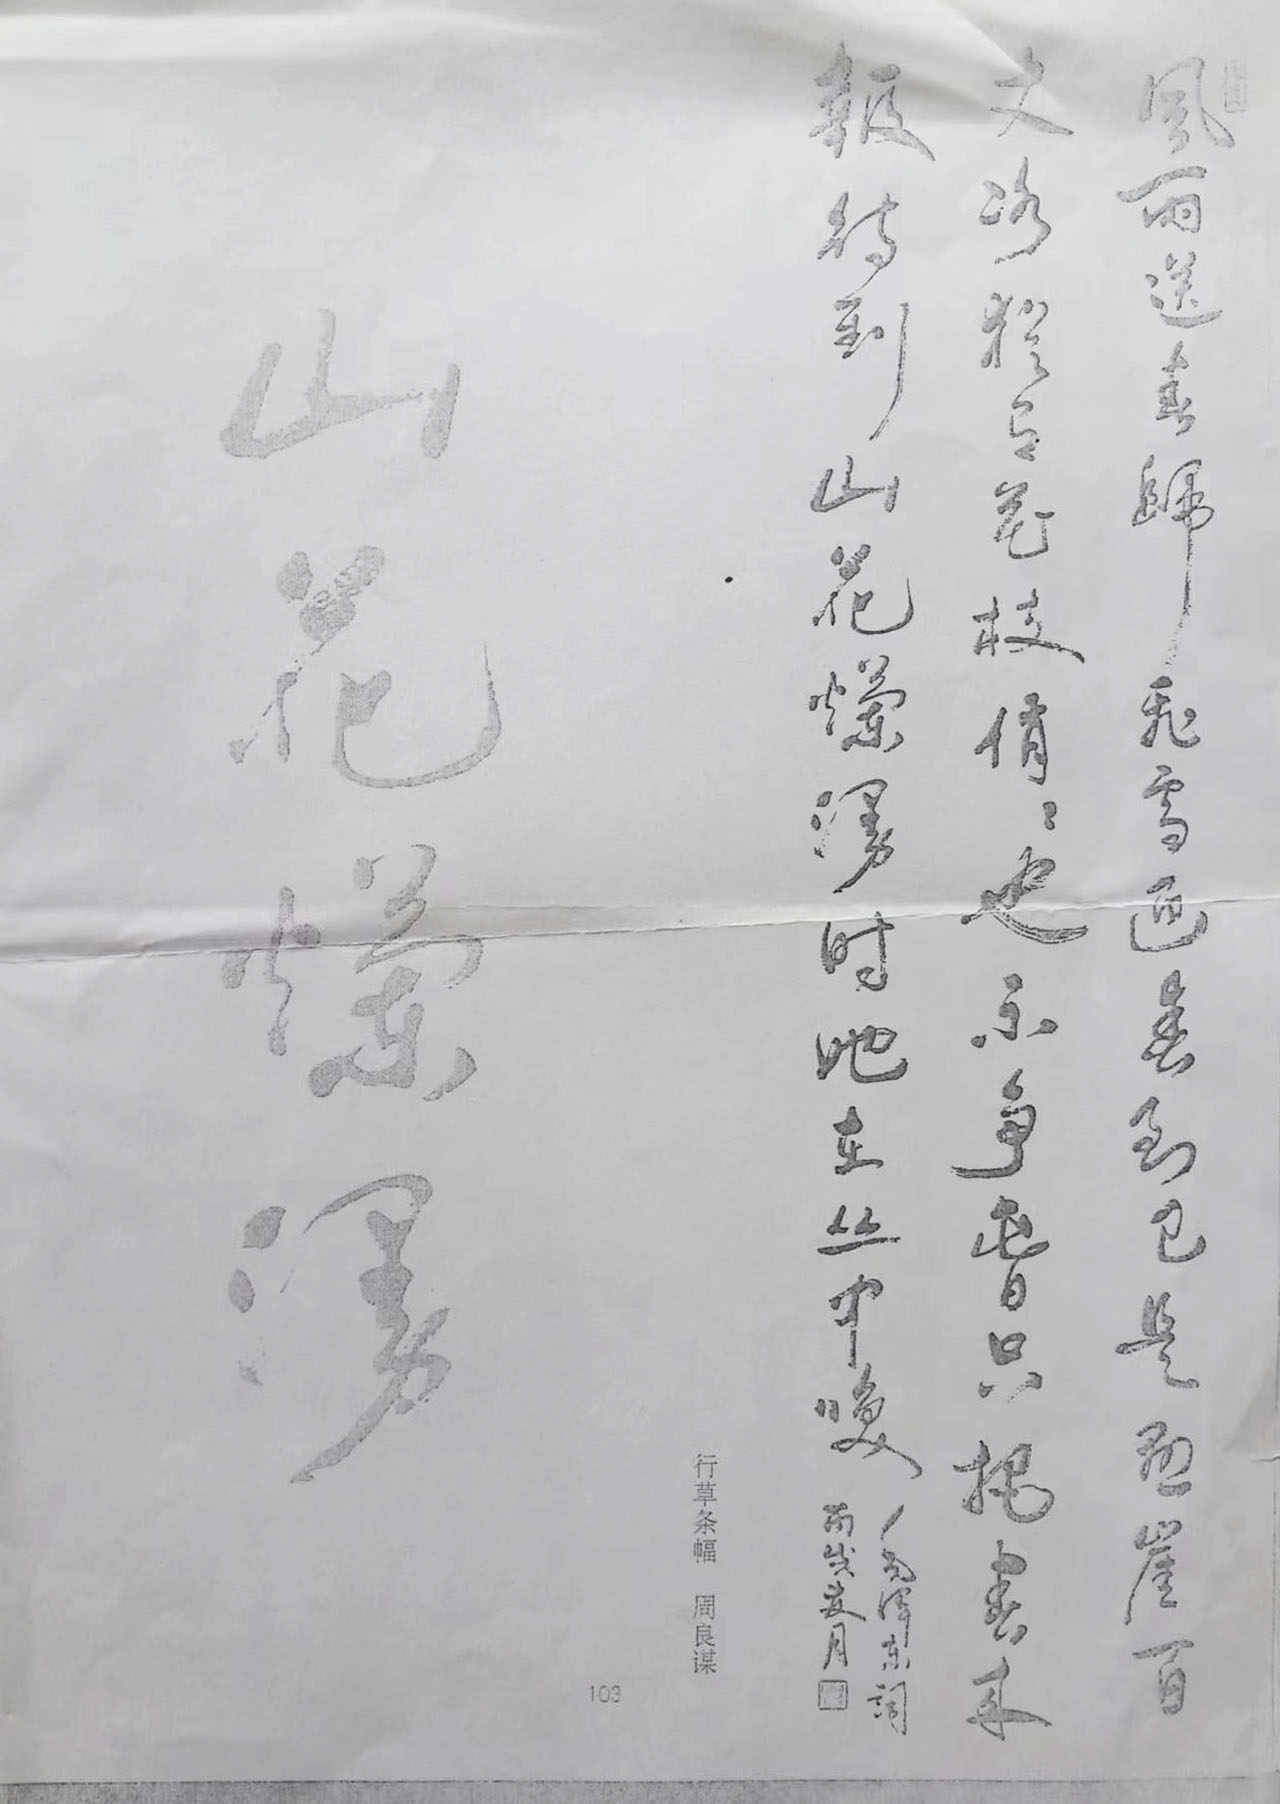 風雨送春歸飛雪迎春到已是懸崖百
丈冰猶有花枝俏〻也不争春只把春来
報待到山花爛漫时她在丛中咲
毛澤東詞
丙戌夏月
行草条幅 周良谋
103
山花爛漫